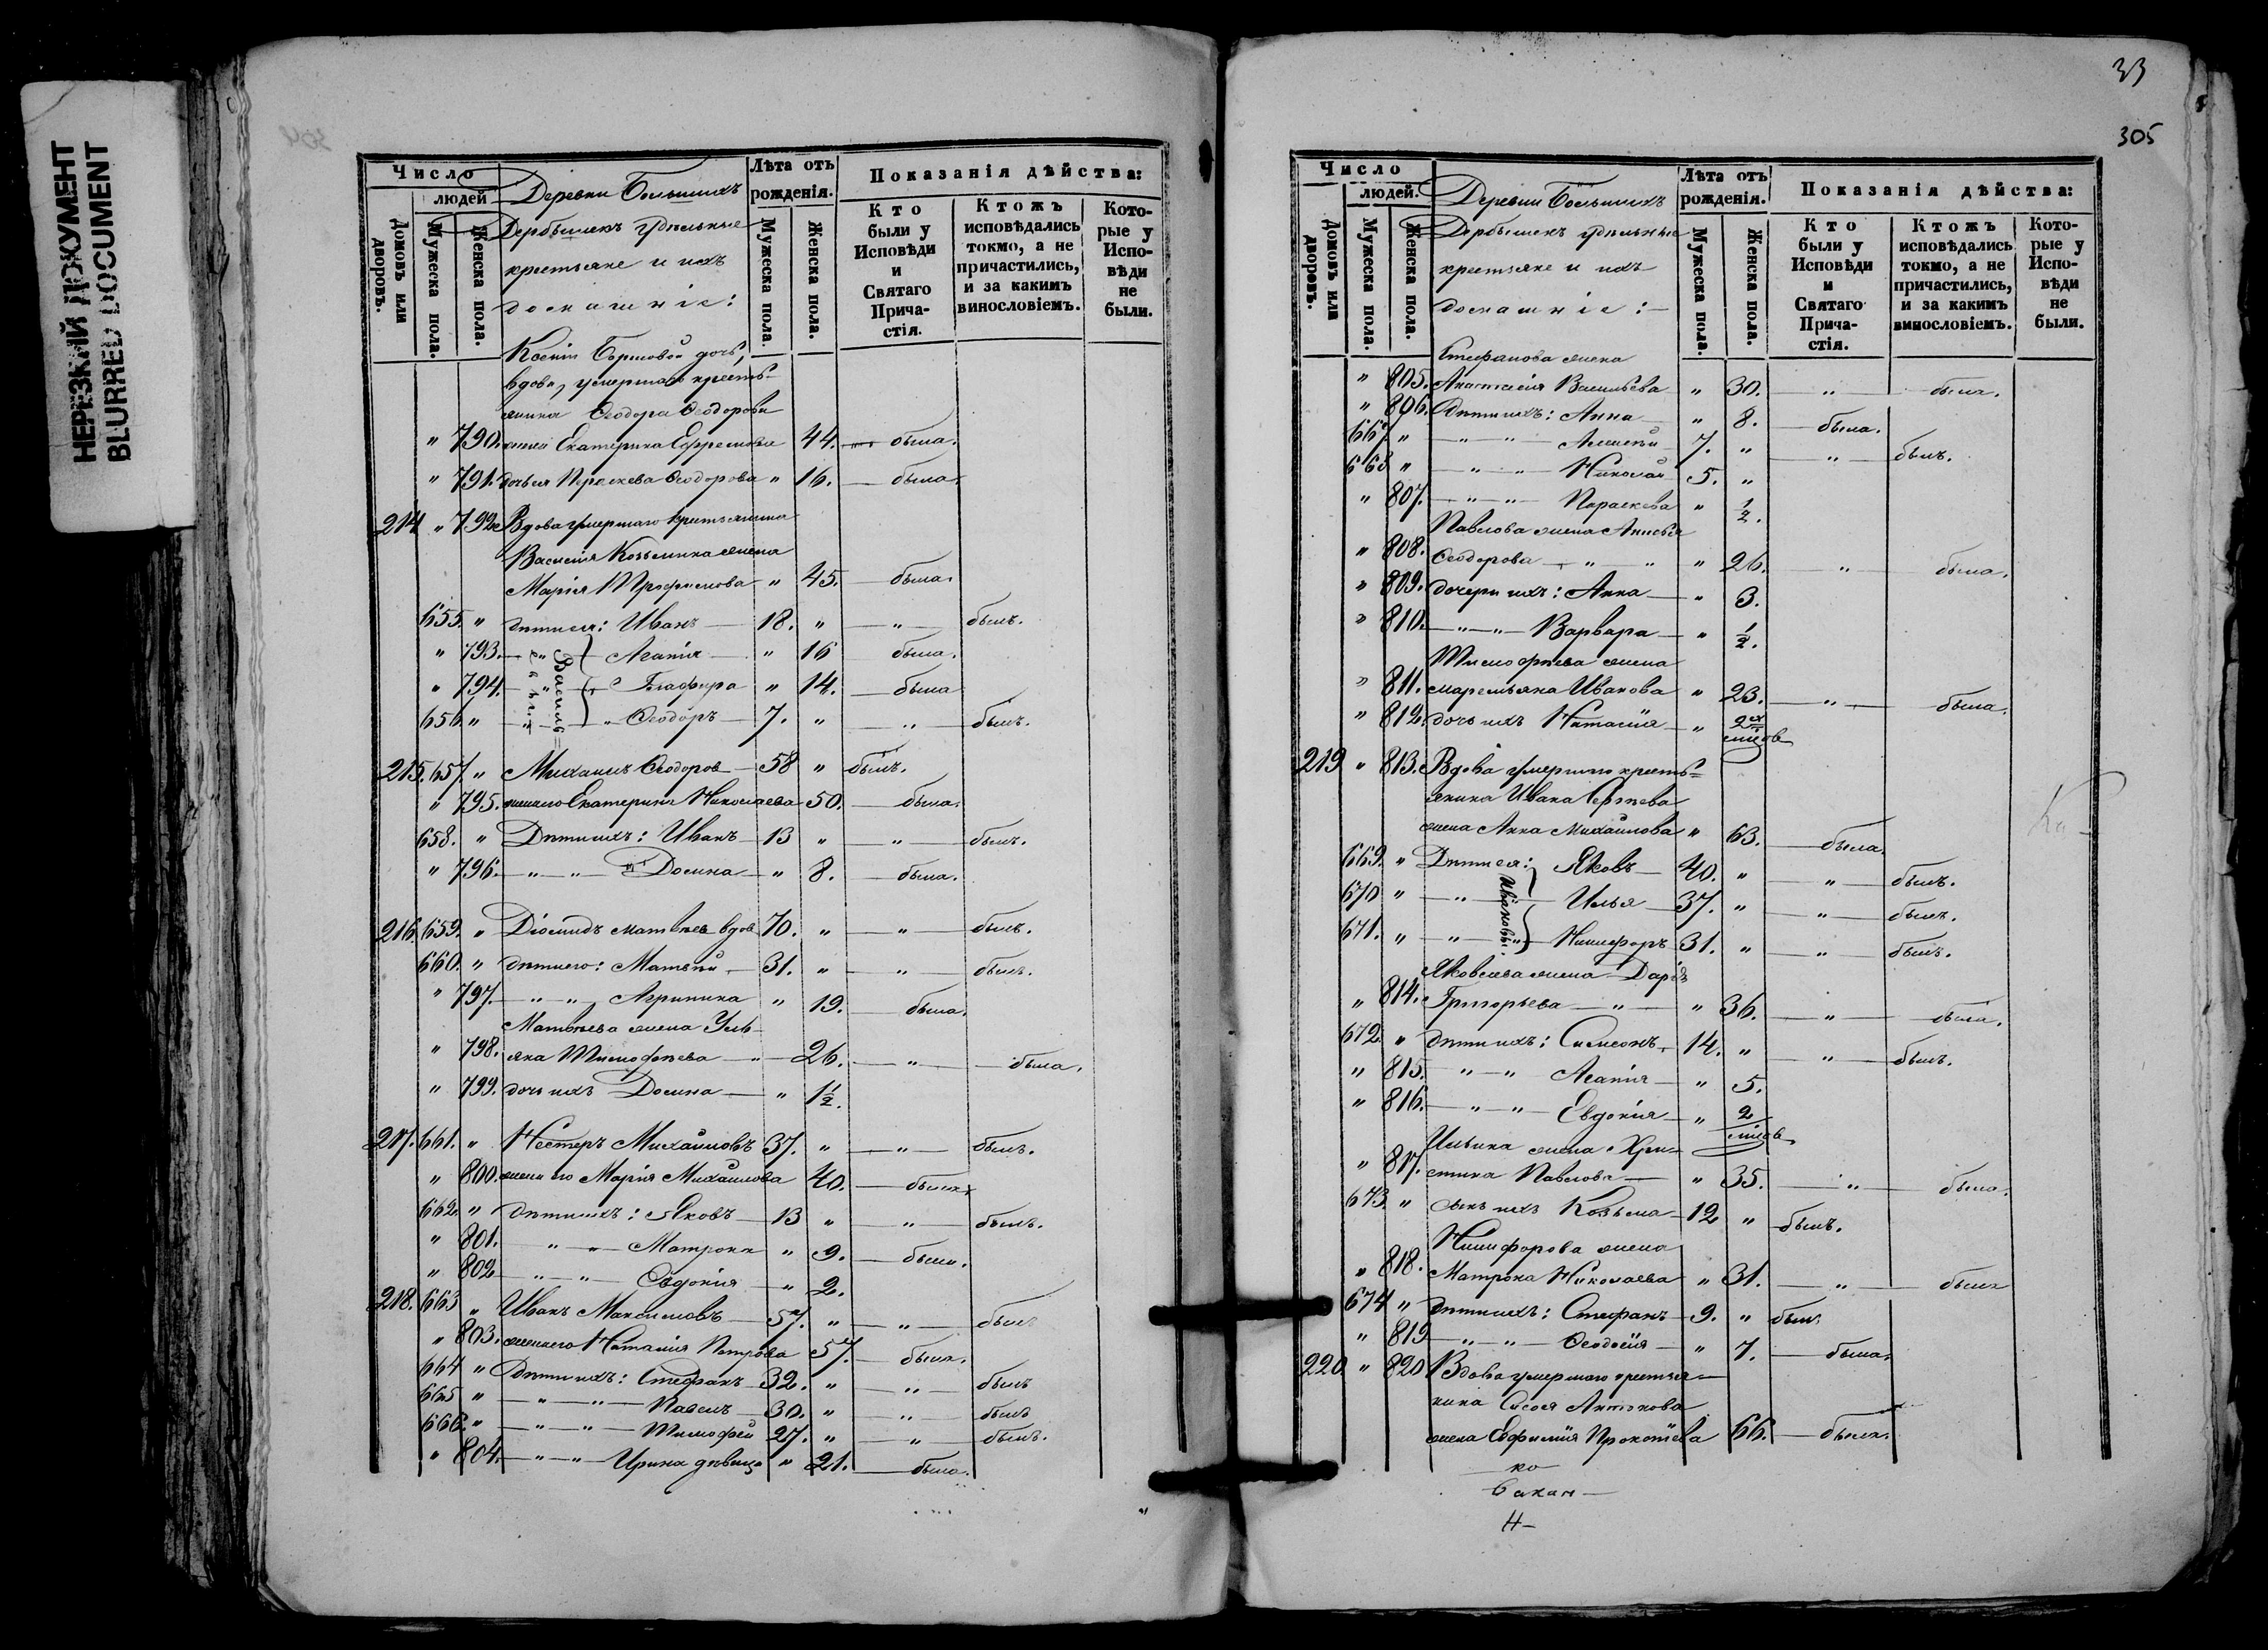 НЕРЕЗКИЙ ДОКУМЕНТ
BLURRED DOCUMENT
Число
людей
Домовъ или дворовъ.
Мужеска пола.
Женска пола.
Деревни Большихъ
Дербышекъ удѣльные
крестьяне и ихъ
домашніе:
Лѣта отъ рожденія.
Мужеска пола.
Женска пола.
Показанія дѣйства:
Кто были у Исповѣди и Святаго Причастія.
Ктожъ исповѣдались токмо, а не причастились, и за какимъ винословіемъ.
Которые у Исповѣди не были.
Ксенія дочь,
вдова, умершаго кресть-
янина Ѳеодора Ѳеодорова
" 790. жена Екатерина Ефремова 44. была.
" 791. дочь ея Параскева Ѳеодорова " 16. была.
214 " 792 Вдова умершаго крестьянина
Василія Козьмина жена
Марія Трофимова " 45. была.
655. " дѣти ея: Иванъ 18. " " былъ.
Василь=
" 793. " Агапія " 16 была.
" 794. " Глафира " 14. была
656 " " Ѳеодоръ 7. " " былъ.
215. 657. " Михаилъ Ѳеодоров 58 " былъ.
" 795. жена его Екатерина Николаева 50. была.
658. " Дѣти ихъ: Иванъ 13 " " былъ.
" 796. " " Домна " 8. была.
216. 659. " Діомидъ Матвѣев вдов 70. " " былъ.
660. " дѣти его: Матвѣй 31. " " былъ.
" 797. " " Агрипина " 19. была.
Матвѣева жена Уль-
" 798. яна Тимофѣева " 26. " была.
" 799. дочь ихъ Домна " 1½.
217. 661. " Нестеръ Михайловъ 37. " " былъ.
" 800. жена его Марія Михаилова 40. была
662. " дѣти ихъ: Яковъ 13 " " былъ.
" 801. " " Матрона " 9. была.
" 802 " " Евдокія " 2.
218. 663 " Иванъ Максимовъ 57. " " былъ
" 803. жена его Наталія Петрова 57. была.
664 " Дѣти ихъ: Стефанъ 32. " " былъ
665 " " " Павелъ 30. " " былъ
666. " " " Тимофей 27. " " былъ.
" 804. " " Ирина дѣвица " 21. была.
33
305
Число
людей.
Домовъ или дворовъ.
Мужеска пола.
Женска пола.
Деревни Большихъ
Дербышекъ удѣльные
крестьяне и ихъ
домашніе:
Лѣта отъ рожденія.
Мужеска пола.
Женска пола.
Показанія дѣйства:
Кто были у Исповѣди и Святаго Причастія.
Ктожъ исповѣдались токмо, а не причастились, и за какимъ винословіемъ.
Которые у Исповѣди не были.
Стефанова жена
" 805. Анастасія Васильева " 30. " была.
" 806. Дѣти ихъ: Анна " 8. была.
667. " " " Алексѣй 7. " " былъ.
668 " " " Николай 5. "
" 807. " " Параскева " ½.
Павлова жена Анисья
" 808. Ѳеодорова " " " 26. " была.
" 809. дочери ихъ: Анна " 3.
" 810. " " Варвара " ½.
Тимофѣева жена
" 811. Маремьяна Иванова " 23. " была.
" 812. дочь ихъ Наталія " 2хъ
219 " 813. Вдова умершаго кресть=
янина Ивана Сергѣева
жена Анна Михайлова " 63. была.
669. " Дѣти ея: Яковъ 40. " " былъ.
Ивановы
670 " " Илья 37. " " былъ.
671. " " " Никифоръ 31. " " былъ.
Яковлева жена Дарья
" 814. Григорьева " " 36. " была.
672. " дѣти ихъ: Симеонъ 14. " " былъ.
" 815. " " Агапія " 5.
" 816. " " Евдокія " 2
Ильина жена Хри-
" 817. стина Павлова " 35. " была.
673 " сынъ ихъ Козьма 12 " былъ.
Никифорова жена
" 818. Матрона Николаева " 31. " была
674 " дѣти ихъ: Стефанъ 9. " былъ
" 819 " " Ѳеодосія " 7. была.
220. " 820 Вдова умершаго крестья-
нина Сысоя Антонова
жена Евфимія Прокопьева 66. была.